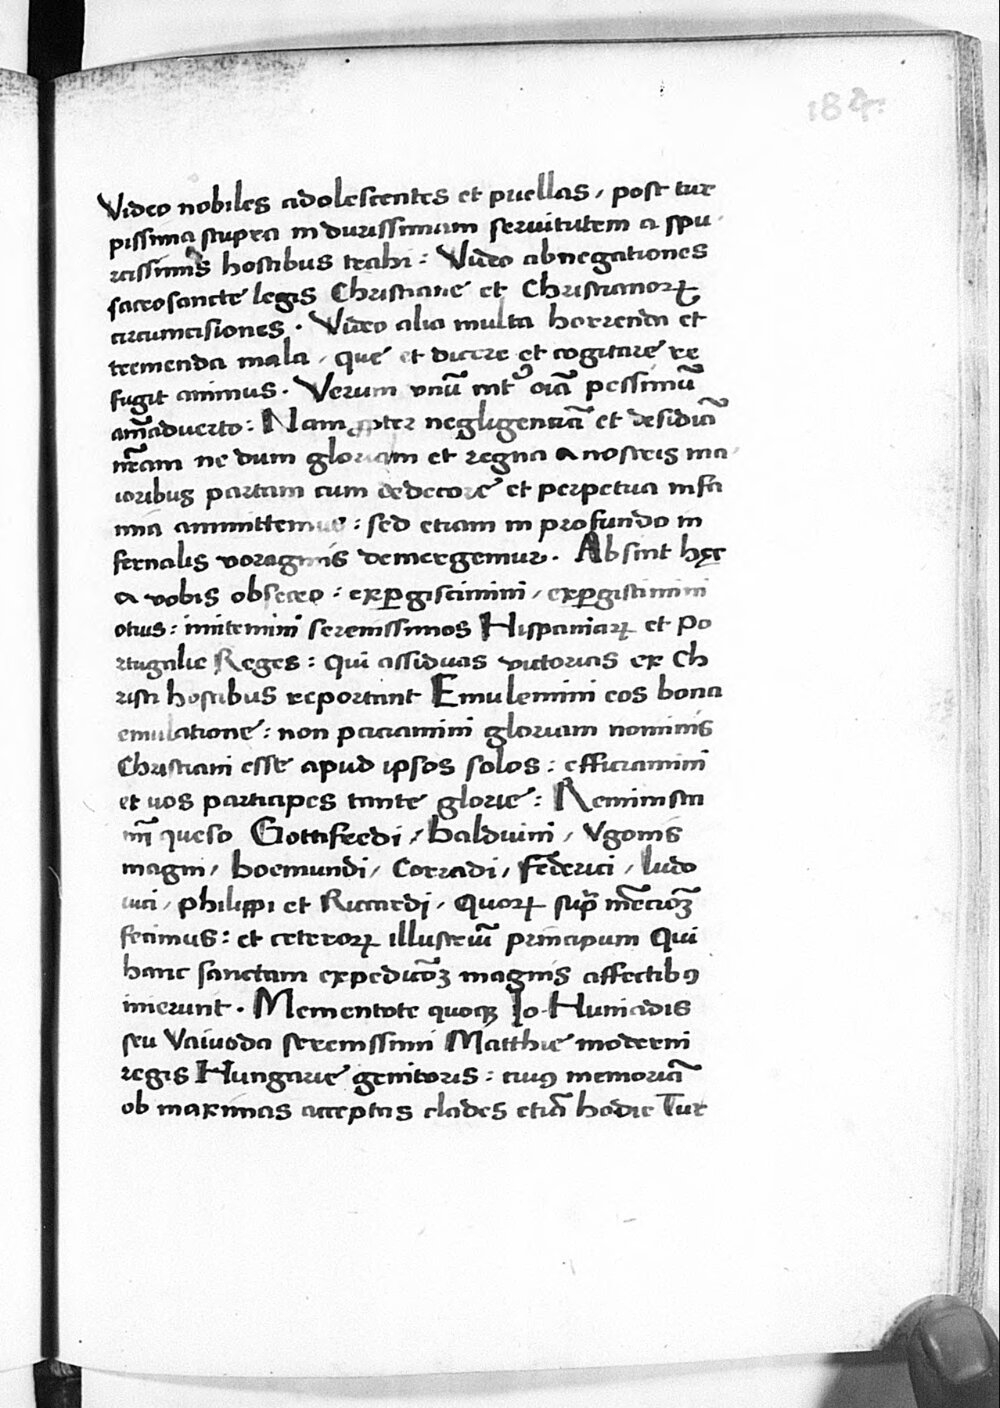 184.
Video nobiles adolescentes et puellas, post tur
pissima stupra in durissimam servitutem a spu
rcissimis hostibus trahi: Video abnegationes
sacrosancte legis Christiane et Christianorꝝ
circumcisiones. Video alia multa horrenda et
tremenda mala, que et dicere et cogitare re
fugit animus. Verum unū intꝰ oīa pessimū
aīaduerto: Nam ꝓpter negligentiā et desidiā
nr̄am ne dum gloriam et regna a nostris ma
ioribus partam cum dedecore et perpetua infa
mia ammittemus: sed etiam in profundo in
fernalis voraginis demergemur. Absint hęc
a vobis obsecro: exꝑgiscimini, exꝑgiscimini
otius: imitemini serenissimos Hispaniarꝝ et Po
rtugalie Reges: qui assiduas victorias ex Ch
risti hostibus reportant Emulemini eos bona
emulatione: non paciamini gloriam nominis
Christiani esse apud ipsos solos: efficiamini
et uos participes tante glorie: Reminisci
mī queso Gottifredi, balduini, Vgonis
magni, boemundi, Corradi, Federici, ludo
uici, philippi et Riccardi, Quorꝝ supra mētiōꝫ
fecimus: et ceterorꝝ illustriū principum Qui
hanc sanctam expeditiōꝫ magnis affectibꝰ
inierunt. Mementote quoqꝫ Io. Huniadis
seu Vaiuoda serenissimi Matthie moderni
regis Hungarie genitoris: cuiꝰ memoriā
ob maximas acceptas clades etiā hodie Tur